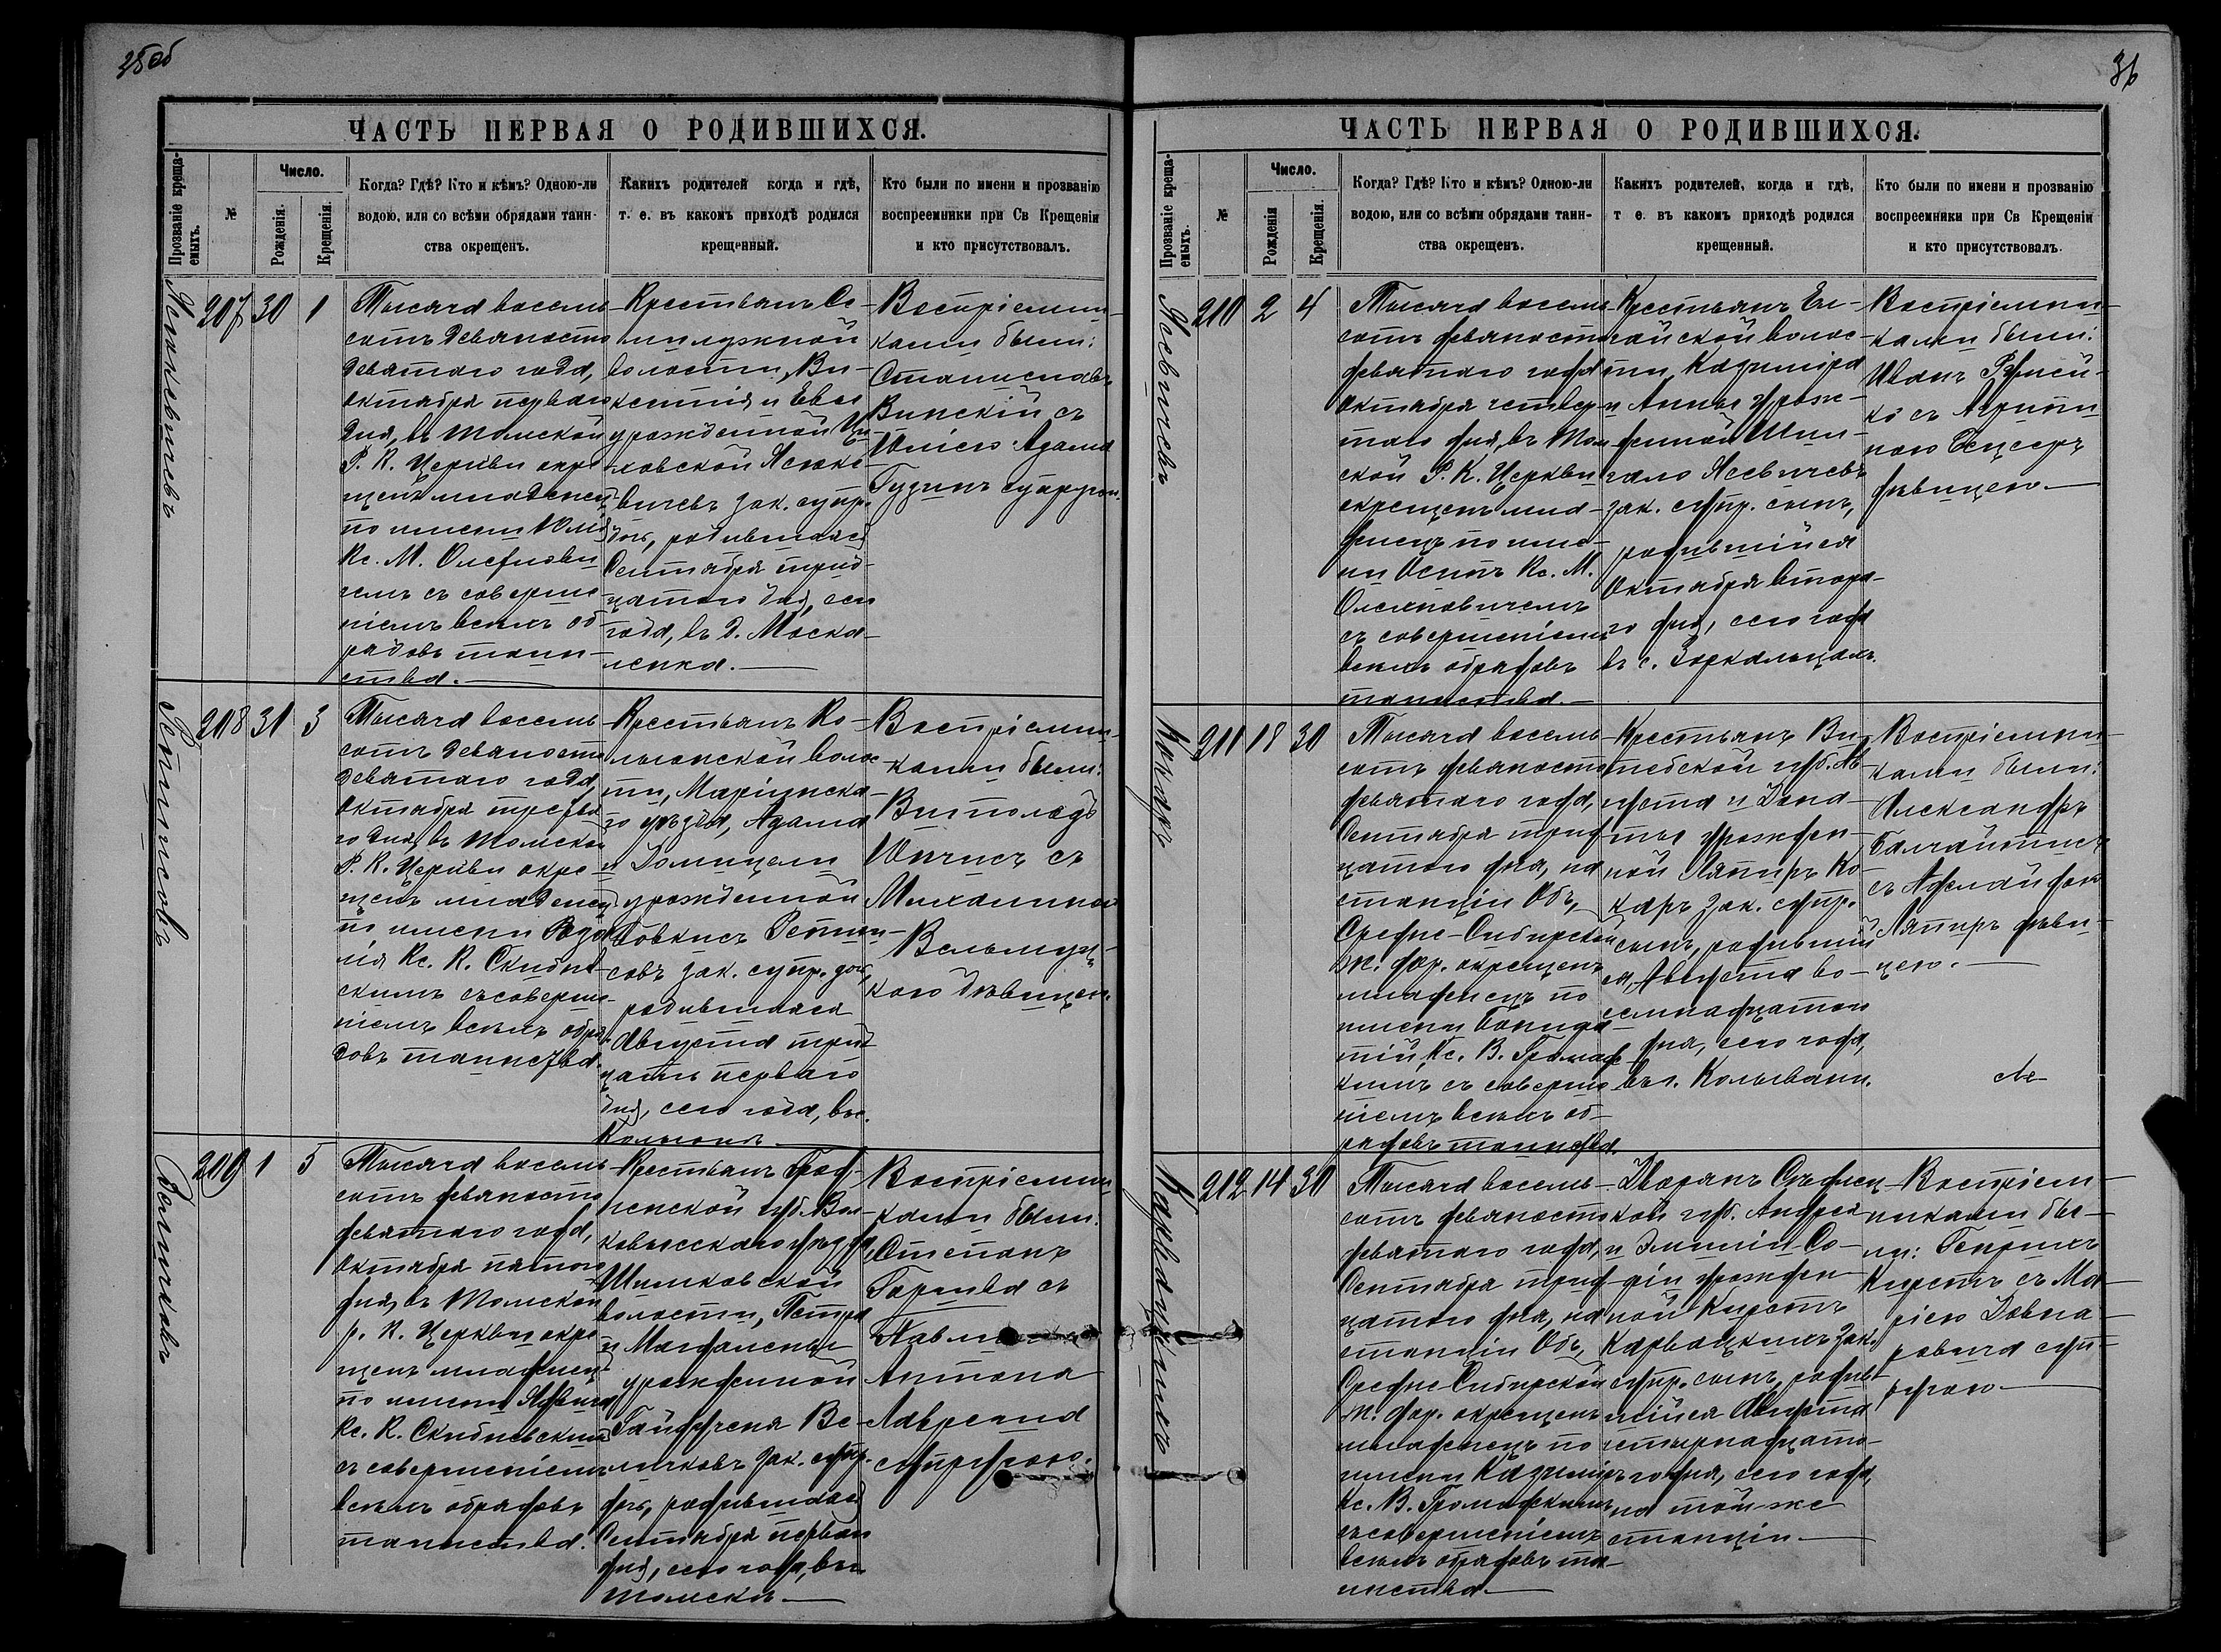 35об
ЧАСТЬ ПЕРВАЯ О РОДИВШИХСЯ.
Прозваніе креща-
емыхъ.
№
Число.
Рожденія.
Крещенія.
Когда? Гдѣ? Кто и кѣмъ? Одною-ли
водою, или со всѣми обрядами таин-
ства окрещенъ.
Какихъ родителей когда и гдѣ,
т. е. въ какомъ приходѣ родился
крещенный.
Кто были по имени и прозванію
воспреемники при Св Крещеніи
и кто присутствовалъ.
207 30 1
Тысяча восемь
сотъ девяносто
девятаго года,
Октября перваго
дня, въ Томской
Р. К. Церкви окре
щенъ младенецъ
по имени Юлія
Кс. М. Олехнови
чемъ съ соверше
ніемъ всѣхъ об
рядовъ таин-
ства.
Крестьянъ Се-
милужной
волости, Ви-
кентія и Евы
урожденной
Ясюке
вичевъ зак. супр.
дочь, родившаяся
Сентября трид-
цатаго дня, сего
года, въ д. Моска-
ленка.
Воспріемни-
ками были:
Станиславъ
Випскій съ
Юліею Адама
супругою.
208 31 3
Тысяча восемь
сотъ девяносто
девятаго года,
Октября третья
го дня, въ Томской
Р. К. Церкви окре-
щенъ младенецъ
по имени Роза
лія Кс. К. Скибнев
скимъ съ соверше-
ніемъ всѣхъ обря
довъ таинства.
Крестьянъ Ко-
льонской волос
ти, Маріинска-
го уѣзда, Адама
и Домицели
урожденной
зак. супр. дочь,
родившаяся
Августа трид
цать перваго
дня, сего года, въ с.
Кольонъ.
Воспріемни-
ками были:
Витольдъ
Юнчисъ съ
Михалиною
Вельмуц-
кою дѣвицею.
209 1 5
Тысяча восемь
сотъ девяносто
девятаго года,
Октября пятаго
дня, въ Томской
Р. К. Церкви окре
щенъ младенецъ
по имени Ядвига
Кс. К. Скибневскимъ
съ совершеніемъ
всѣхъ обрядовъ
таинства.
Крестьянъ Грод-
ненской губ. Вол-
ковысскаго уѣзда,
Шимковской
волости, Петра
и Магдалены
урожденной
зак. супр.
дочь, родившаяся
Сентября перваго
дня, сего года, въ г.
Томскѣ.
Воспріемни-
ками были:
Степанъ
Горпива съ
Антона
Лавренна
супругою.
36
ЧАСТЬ ПЕРВАЯ О РОДИВШИХСЯ.
Прозваніе креща-
емыхъ.
№
Число.
Рожденія
Крещенія.
Когда? Гдѣ? Кто и кѣмъ? Одною-ли
водою, или со всѣми обрядами таин-
ства окрещенъ.
Какихъ родителей, когда и гдѣ,
т е. въ какомъ приходѣ родился
крещенный.
Кто были по имени и прозванію
воспреемники при Св Крещеніи
и кто присутствовалъ.
Ясевичевъ
210 2 4
Тысяча восемь
сотъ девяносто
девятаго года
Октября четвер
таго дня, въ Том
ской Р. К. Церкви
окрещенъ мла-
денецъ по име-
ни Осипъ Кс. М.
Олехновичемъ
съ совершеніемъ
всѣхъ обрядовъ
таинства.
Крестьянъ Ел-
гайской волос-
ти, Казиміра
и Анны урож-
денной Шин-
гало Ясевичевъ
зак. супр. сынъ,
родившійся
Октября второ-
го дня, сего года
въ с. Зоркальцахъ.
Воспріемни-
ками были:
Иванъ
дѣвицею.
Кокаръ
211 18 30
Тысяча восемь
сотъ девяносто
девятаго года,
Сентября трид
цатаго дня, на
станціи Обь,
Средне-Сибирской
ж. дор. окрещенъ
младенецъ по
имени Бонифа
тій, Кс. В. Громадз
кимъ съ соверше
ніемъ всѣхъ об-
рядовъ таинства.
Крестьянъ Ви-
тебской губ. Ав
густа и Дона-
ты урожден-
ной Ляпиръ Ко-
каръ зак. супр.
сынъ, родившій
ся, Августа во-
семнадцатаго
дня, сего года,
въ г. Колывани.
Воспріемни-
ками были:
Александръ
съ Аделайдою
Ляпиръ дѣви-
цею.
Карвацкихъ
212 14 30
Тысяча восемь-
сотъ девяносто
девятаго года,
Сентября трид-
цатаго дня, на
станціи Обь,
Средне-Сибирской
ж. дор. окрещенъ
младенецъ по
имени Казиміръ
Кс. В. Громадзкимъ
съ совершеніемъ
всѣхъ обрядовъ та-
инства.
Дворянъ Сѣдлец
кой губ. Андрея
и Эмиліи-Со-
фіи урожден-
ной Кирстъ
Карвацкихъ зак.
супр. сынъ, родив-
шійся Августа
четырнадцата-
го дня, сего года,
на той-же
станціи.
Воспріем-
никами бы-
ли: Генрихъ
Кирстъ съ Ма-
ріею
супругою.